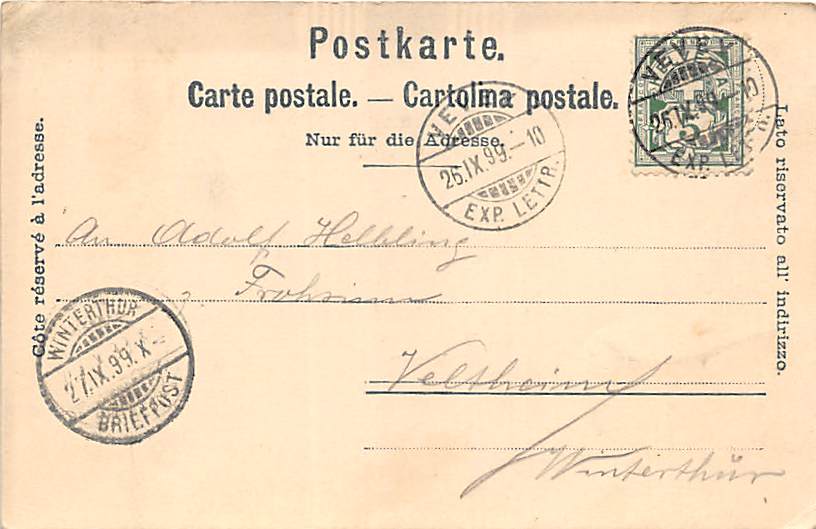 Postkarte.
Carte postale. — Cartolina postale.
Nur für die Adresse.
Côte réservé à l'adresse.
Lato riservato all' indirizzo.
VEVEY
26.IX.99.–10
EXP. LETTR.
VEVEY
26.IX.99.–10
EXP. L
5
An Adolf Helbling
Frohsinn
Veltheim
Winterthur
WINTERTHUR
27.IX.99.X–
BRIEFPOST